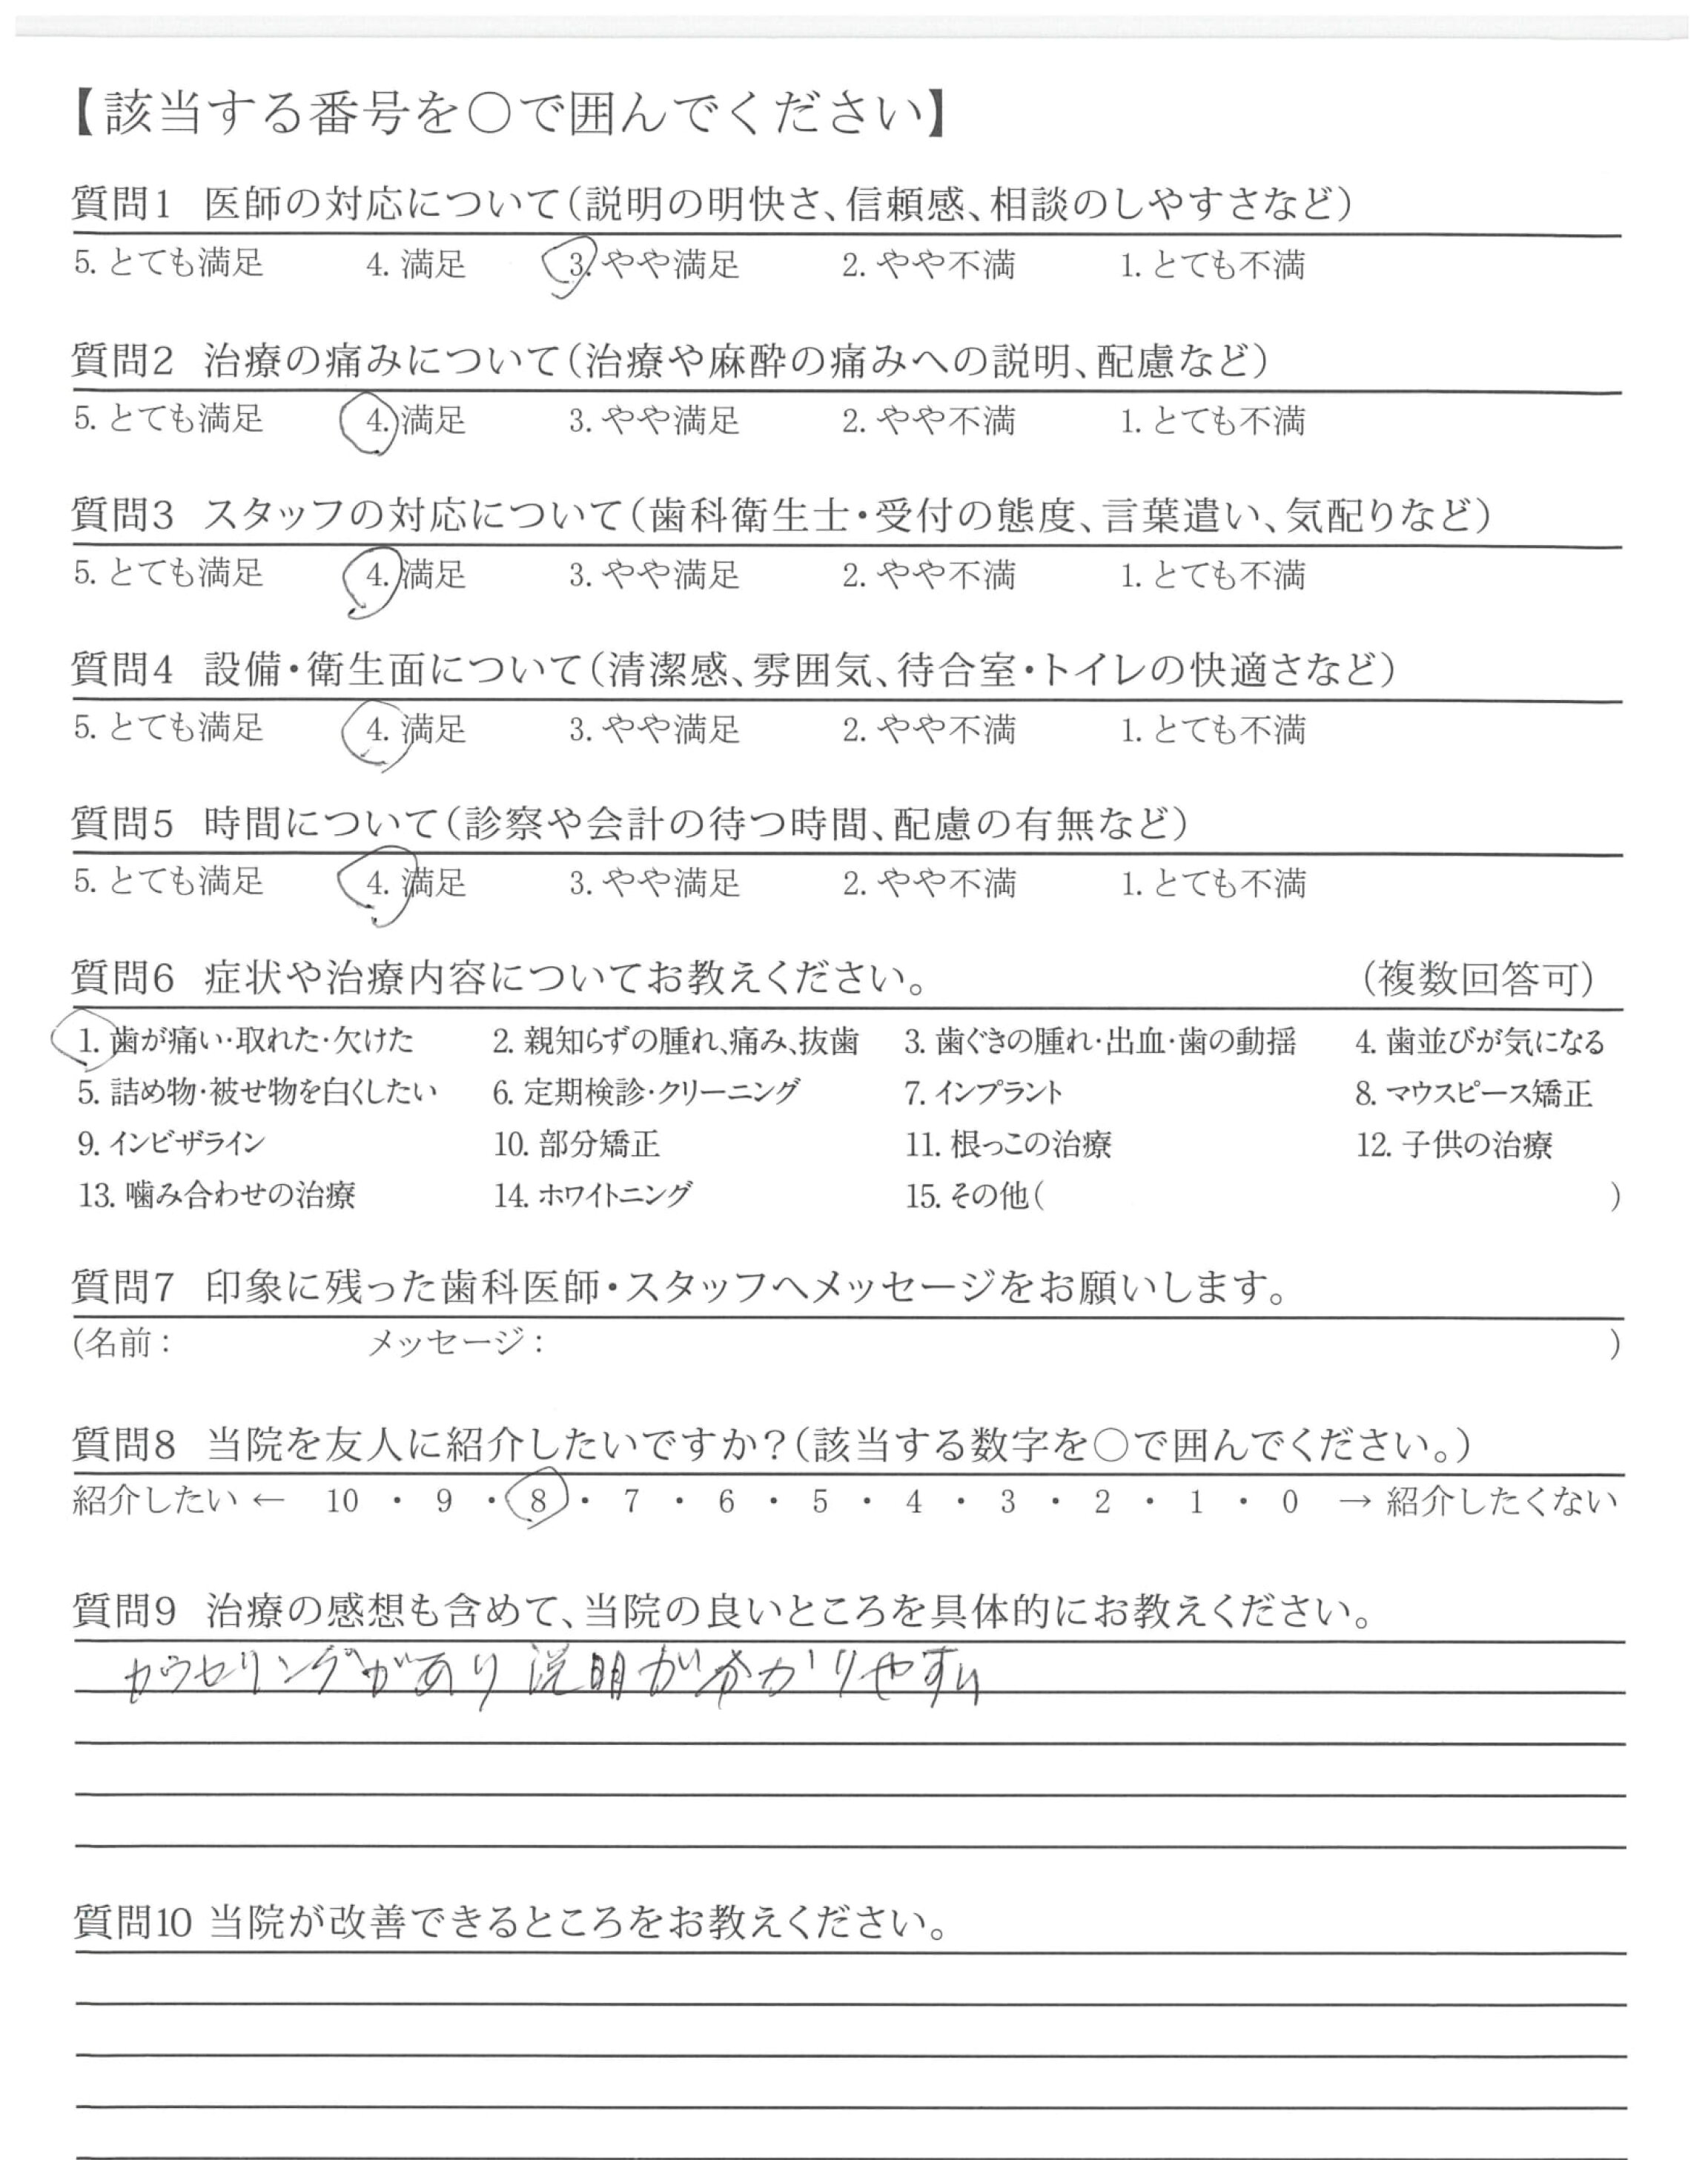 【該当する番号を○で囲んでください】
質問1 医師の対応について（説明の明快さ、信頼感、相談のしやすさなど）
5. とても満足 4. 満足 3. やや満足 2. やや不満 1. とても不満
質問2 治療の痛みについて（治療や麻酔の痛みへの説明、配慮など）
5. とても満足 4. 満足 3. やや満足 2. やや不満 1. とても不満
質問3 スタッフの対応について（歯科衛生士・受付の態度、言葉遣い、気配りなど）
5. とても満足 4. 満足 3. やや満足 2. やや不満 1. とても不満
質問4 設備・衛生面について（清潔感、雰囲気、待合室・トイレの快適さなど）
5. とても満足 4. 満足 3. やや満足 2. やや不満 1. とても不満
質問5 時間について（診察や会計の待つ時間、配慮の有無など）
5. とても満足 4. 満足 3. やや満足 2. やや不満 1. とても不満
質問6 症状や治療内容についてお教えください。 （複数回答可）
1. 歯が痛い・取れた・欠けた 2. 親知らずの腫れ、痛み、抜歯 3. 歯ぐきの腫れ・出血・歯の動揺 4. 歯並びが気になる
5. 詰め物・被せ物を白くしたい 6. 定期検診・クリーニング 7. インプラント 8. マウスピース矯正
9. インビザライン 10. 部分矯正 11. 根っこの治療 12. 子供の治療
13. 噛み合わせの治療 14. ホワイトニング 15. その他（ ）
質問7 印象に残った歯科医師・スタッフへメッセージをお願いします。
（名前： メッセージ： ）
質問8 当院を友人に紹介したいですか？（該当する数字を○で囲んでください。）
紹介したい ← 10 ・ 9 ・ 8 ・ 7 ・ 6 ・ 5 ・ 4 ・ 3 ・ 2 ・ 1 ・ 0 → 紹介したくない
質問9 治療の感想も含めて、当院の良いところを具体的にお教えください。
カウセリングがあり説明が分かりやすい
質問10 当院が改善できるところをお教えください。